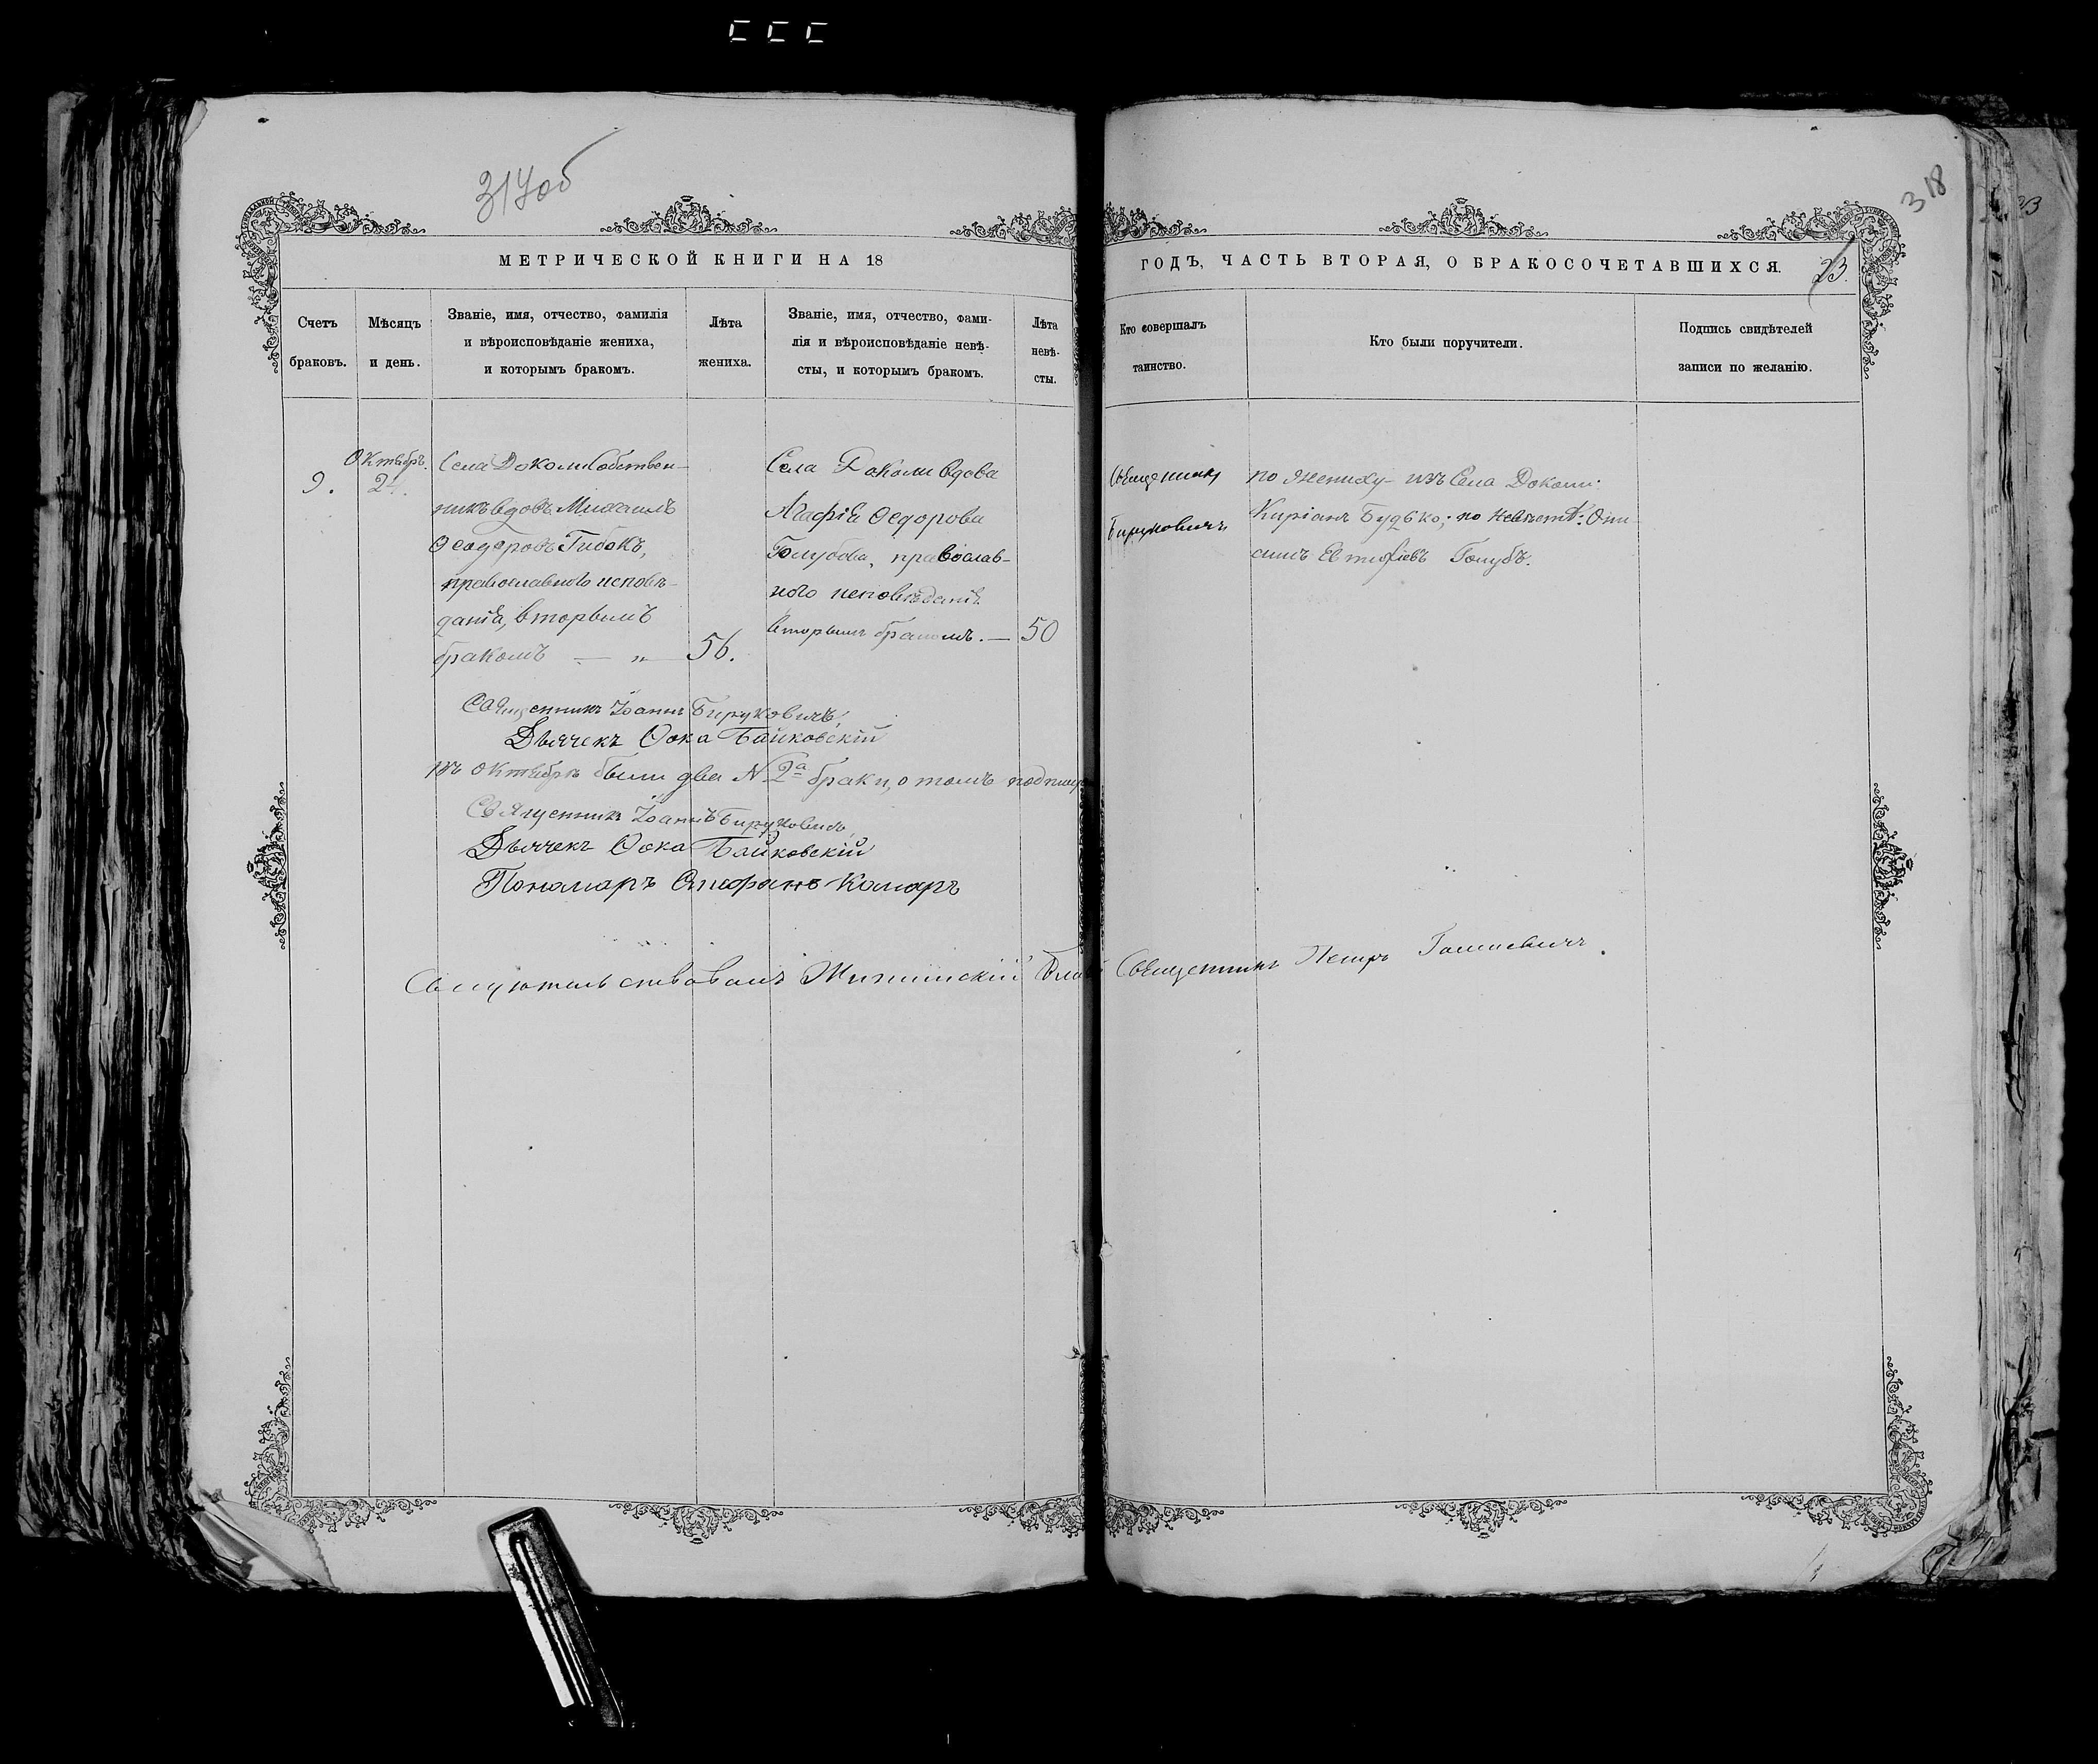 317об
318
МЕТРИЧЕСКОЙ КНИГИ НА 18
ГОДЪ, ЧАСТЬ ВТОРАЯ, О БРАКОСОЧЕТАВШИХСЯ.
23.
Счетъ
браковъ.
Мѣсяцъ
и день.
Званіе, имя, отчество, фамилія
и вѣроисповѣданіе жениха,
и которымъ бракомъ.
Лѣта
жениха.
Званіе, имя, отчество, фами-
лія и вѣроисповѣданіе невѣ-
сты, и которымъ бракомъ.
Лѣта
невѣ-
сты.
Кто совершалъ
таинство.
Кто были поручители.
Подпись свидѣтелей
записи по желанію.
9.
Октябрь.
24.
Села Доколи Собствен-
никъ вдовъ Михаилъ
Ѳеодоровъ Гибокъ,
православнаго исповѣ-
данія, вторымъ
бракомъ — „ —
56.
Села Доколи вдова
Агафія Ѳедорова
Голубова, православ-
ного исповѣданія
вторымъ бракомъ. —
50
Священникъ
Бируковичъ
по жениху- изъ Села Доколи:
Киріанъ Будько; по невѣстѣ: Они-
симъ Евтифіевъ Голубъ.
Священникъ Іоаннъ Бируковичъ,
Дьячекъ Ѳока Байковскій
въ Октябрѣ были два № 2а браки, о томъ
Священникъ Іоаннъ Бируковичъ,
Дьячекъ Ѳока Байковскій
Пономаръ Стефанъ Комаръ
Свидѣтельствовалъ Благ Священникъ Петръ